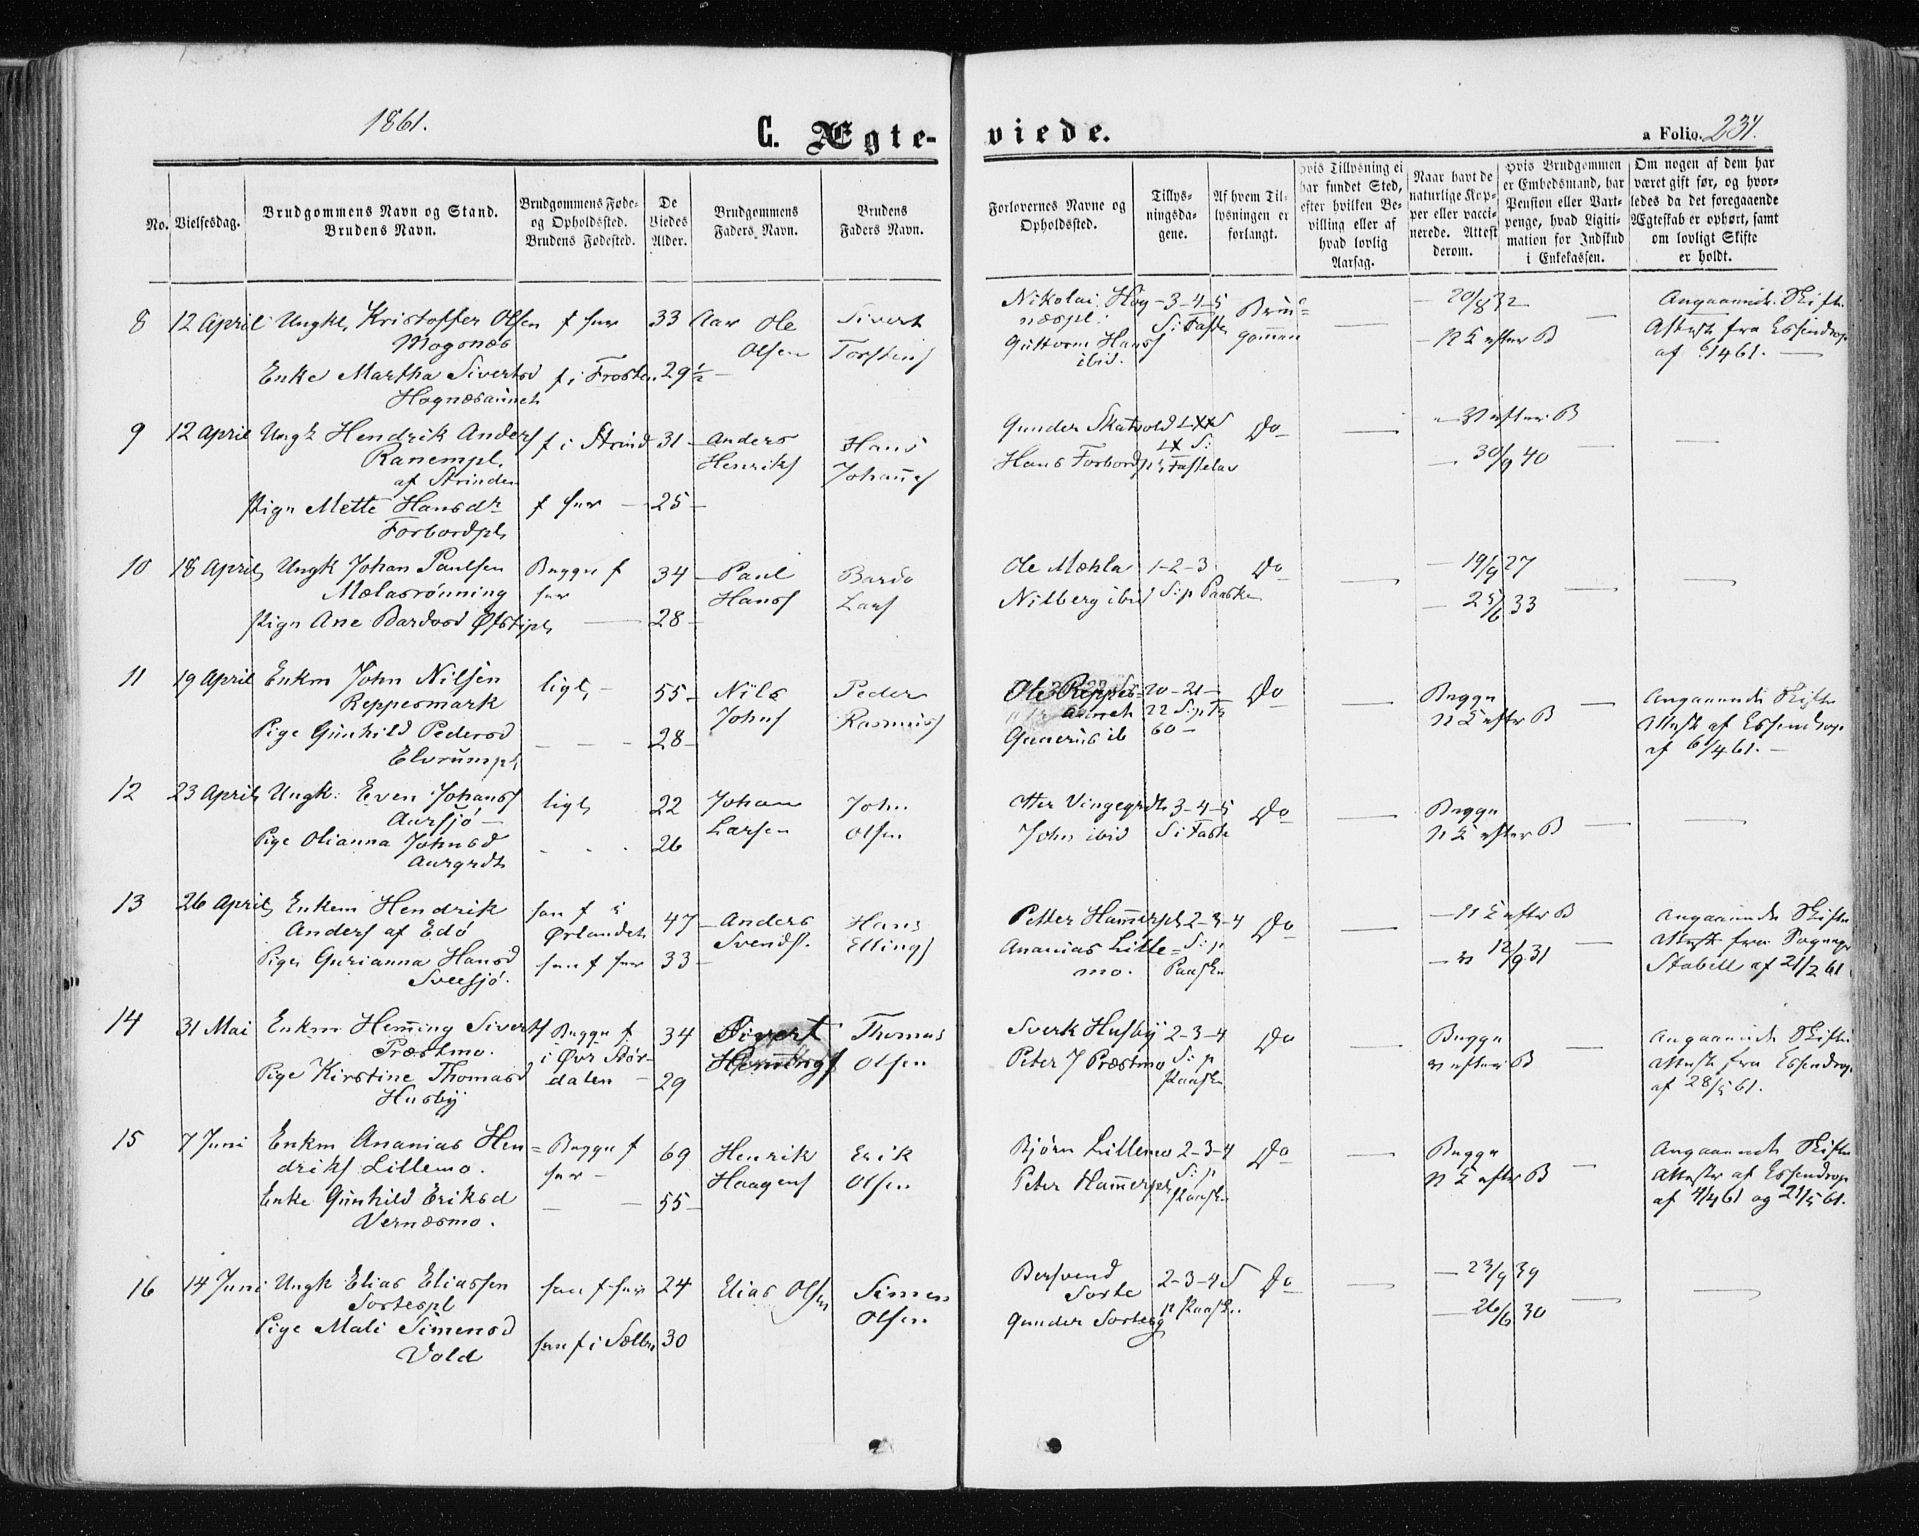 1861.
C. Ægte-
viede.
a Folio. 234.
No.
Vielsesdag.
Brudgommens Navn og Stand.
Brudens Navn.
Brudgommens Føde-
og Opholdssted.
Brudens Fødested.
De
Viedes
Alder.
Brudgommens
Faders Navn.
Brudens
Faders Navn.
Forlovernes Navne og
Opholdssted.
Tillys-
ningsda-
gene.
Af hvem Til-
lysningen er
forlangt.
Hvis Tillysning ei
har fundet Sted,
efter hvilken Be-
villing eller af
hvad lovlig
Aarsag.
Naar havt de
naturlige Kop-
per eller vacci-
nerede. Attest
derom.
Hvis Brudgommen
er Embedsmand, har
Pension eller Vart-
penge, hvad Ligiti-
mation for Indskud
i Enkekassen.
Om nogen af dem har
været gift før, og hvor-
ledes da det foregaaende
Ægteskab er ophørt, samt
om lovligt Skifte
er holdt.
8 12 April Ungk Kristoffer Olsen f her 33 Aar Ole Sivert
Mogsnæs Olsen Torstens
Enke Martha Sivertsd f i Frosten 29 1/2 —
Hognæsaunet
Nikolai Hog- 3-4-5 Brud-
næspl. S i Faste gommen
Guttorm Hans
ibid.
20/8 32
n E efter B
Angaaende Skifte
Attest fra Essendrop
af 6/4 61. —
9 12 April Ungk Hendrik Anders f i Strind 31 — Anders Hans
Ranempl. Henriks Johans
af Strinden
Pige Mette Hansdr f her — 25 —
Forbordpl
Gunder Skatvold
Hans Forbordpl Fastelav
Do
efter B
30/9 40
10 18 April Ungk Johan Paulsen Begge f 34 — Paul Bardo
Mælasrønning her Hans Lars
Pige Ane Bardosd Øfstipl — 28 —
Ole Mæhla 1-2-3 Do
Nilberg ibid S. p Paaske
19/9 27
25/6 33
11 19 April Enkm John Nilsen lige — 55 — Nils Peder
Reppesmark Johns Rasmus
Pige Gunhild Pedersd — — — 28 —
Elvrumpl
Ole Reppes- 20-21- Do
aunet 22 S. p Tr
Gunerius ib 60 —
Begge
n E efter B
Angaaende Skifte
Attest af Essendrop
af 6/4 61. —
12 23 April Ungk: Even Johans lige 22 Johan John
Aursjø — Larsen Olsen
Pige Olianna Johnsd . . . 26
Aurgrdt
Vingegrdt 3-4-5 Do
John ibid S i Faste
Begge
n E efter B
13 26 April Enkem Hendrik han f i 47 — Anders Hans
Anders af Edø Ørlandet Svends. Ellings
Pige Gurianna Hansd hun f her 33 —
Sveesjø.
Petter Hammerpl 2-3-4 Do
Ananias Lille- S. p
mo. Paaske
— n E efter B
— n 12/9 31
Angaaende Skifte
Attest fra Sognepr
Stabell af 21/2 61
14 31 Mai Enkm Hemming Siverts Begge f 34 Sivert Thomas
Præstmo. i Øvr Stør- Hemmings Olsen
Pige Kirstine Thomasd dalen — 29
Husby
Sverk Husby 2-3-4 Do
Peter J Præstmo S. p
Paaske
Begge
n efter B
Angaaende Skifte
Attest fra Essendrop
af 28/5 61.
15 7 Juni Enkm Ananias Hen- Begge f 69 Henrik Erik
driks Lillemo. her — Haagens Olsen
Enke Gunhild Eriksd — — 55 —
Vernæsmo.
Bjørn Lillemo 2-3-4 Do
Peter Hammerpl S. p
Paaske
Begge
n E efter B
Angaaende Skifte
Attester af Essendrop
af 4/4 61 og 21/5 61.
16 14 Juni Ungk Elias Eliassen han f her 24 Elias Olsen Simen
Sortespl Olsen
Pige Mali Simensd hun f i Sælbu 30
Vold
Bersvend 2-3-4 S Do
Sorte p Paaske
Gunder Sorteng
23/9 39
26/6 30